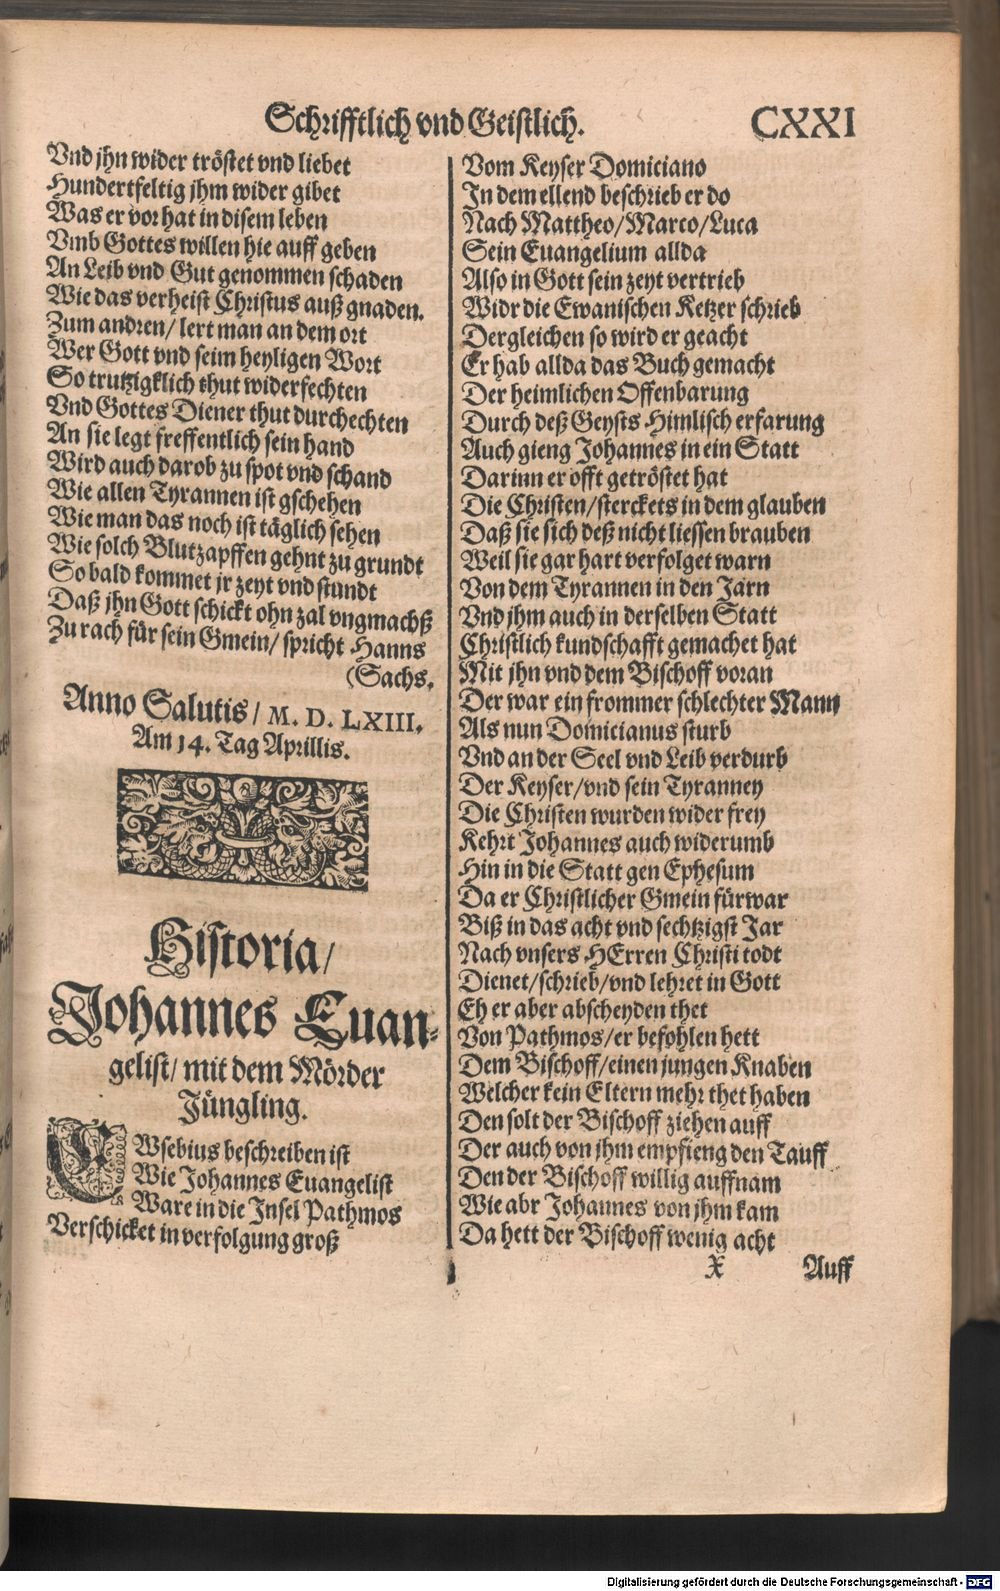 Schrifftlich vnd Geistlich. CXXI
Vnd jhn wider tröstet vnd liebet
Hundertfeltig jhm wider gibet
Was er vor hat in disem leben
Vmb Gottes willen hie auff geben
An Leib vnd Gut genommen schaden
Wie das verheist Christus auß gnaden.
Zum andren/ lert man an dem ort
Wer Gott vnd seim heyligen Wort
So trutzigklich thut widerfechten
Vnd Gottes Diener thut durchechten
An sie legt freffentlich sein hand
Wird auch darob zu spot vnd schand
Wie allen Tyrannen ist gschehen
Wie man das noch ist täglich sehen
Wie solch Blutzapffen gehnt zu grundt
So bald kommet jr zeyt vnd stundt
Daß jhn Gott schickt ohn zal vngmachß
Zu rach für sein Gmein/ spricht Hanns
(Sachs.
Anno Salutis/ M. D. LXIII.
Am 14. Tag Aprillis.
Historia/
Johannes Euan-
gelist/ mit dem Mörder
Jüngling.
EWsebius beschreiben ist
Wie Johannes Euangelist
Ware in die Insel Pathmos
Verschicket in verfolgung groß
Vom Keyser Domiciano
In dem ellend beschrieb er do
Nach Mattheo/Marco/Luca
Sein Euangelium allda
Also in Gott sein zeyt vertrieb
Widr die Ewanischen Ketzer schrieb
Dergleichen so wird er geacht
Er hab allda das Buch gemacht
Der heimlichen Offenbarung
Durch deß Geysts Himlisch erfarung
Auch gieng Johannes in ein Statt
Darinn er offt getröstet hat
Die Christen/sterckets in dem glauben
Daß sie sich deß nicht liessen brauben
Weil sie gar hart verfolget warn
Von dem Tyrannen in den Jarn
Vnd jhm auch in derselben Statt
Christlich kundschafft gemachet hat
Mit jhn vnd dem Bischoff voran
Der war ein frommer schlechter Mann
Als nun Domicianus sturb
Vnd an der Seel vnd Leib verdurb
Der Keyser/vnd sein Tyranney
Die Christen wurden wider frey
Kehrt Johannes auch widerumb
Hin in die Statt gen Ephesum
Da er Christlicher Gmein fürwar
Biß in das acht vnd sechtzigst Jar
Nach vnsers HErren Christi todt
Dienet/schrieb/vnd lehret in Gott
Eh er aber abscheyden thet
Von Pathmos/er befohlen hett
Dem Bischoff/einen jungen Knaben
Welcher kein Eltern mehr thet haben
Den solt der Bischoff ziehen auff
Der auch von jhm empfieng den Tauff
Den der Bischoff willig auffnam
Wie abr Johannes von jhm kam
Da hett der Bischoff wenig acht
X Auff
Digitalisierung gefördert durch die Deutsche Forschungsgemeinschaft - DFG